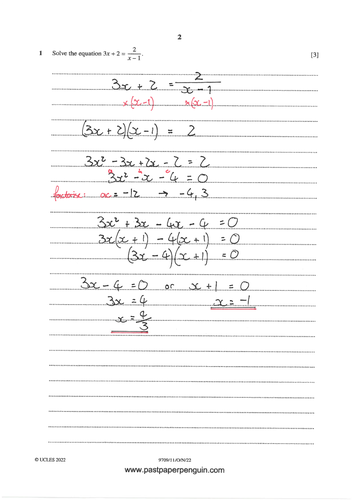 2
1 Solve the equation 3x + 2 = 2/(x − 1). [3]
3x + 2 = 2/(x − 1)
×(x−1) ×(x−1)
(3x + 2)(x − 1) = 2
3x² − 3x + 2x − 2 = 2
3x² − x − 4 = 0
factorise: ac = −12 → −4, 3
3x² + 3x − 4x − 4 = 0
3x(x + 1) − 4(x + 1) = 0
(3x − 4)(x + 1) = 0
3x − 4 = 0 or x + 1 = 0
3x = 4 x = −1
x = 4/3
© UCLES 2022 9709/11/O/N/22
www.pastpaperpenguin.com